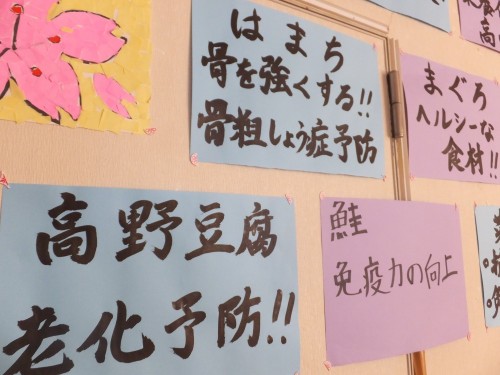 はまち
骨を強くする!!
骨粗しょう症予防
まぐろ
ヘルシーな
食材!!
高野豆腐
老化予防!!
鮭
免疫力の向上